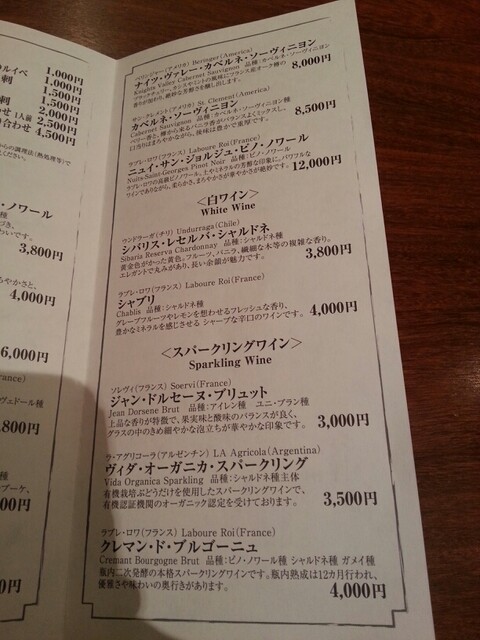 ルイベ 1,000円
刺 1,000円
1,500円
刺 1,500円
2,000円
1人前 2,500円
合わせ 4,500円
ノワール
3,800円
4,300円
6,000円
ヴェドール種
,800円
ブーケ、
00円
ベリンジャー(アメリカ) Beringer(America)
ナイツ・ヴァレー・カベルネ・ソーヴィニヨン
Knights Valley Cabernet Sauvignon 品種:カベルネ・ソーヴィニヨン
8,000円
サン・クレメント(アメリカ) St. Clement(America)
カベルネ・ソーヴィニヨン
Cabernet Sauvignon 品種:カベルネ・ソーヴィニヨン種
口当りまろやかながら、後味は豊かで重厚です。
8,500円
ラブレ・ロワ(フランス) Laboure Roi(France)
ニュイ・サン・ジョルジュ・ピノ・ノワール
Nuits-Saint-Georges Pinot Noir 品種:ピノ・ノワール
ラブレ・ロワの高級ピノ・ノワール。土やミネラルの芳醇な印象に、パワフルな
ワインでありながら、柔らかさ、まろやかさが華やかさが絶妙です。
12,000円
<白ワイン>
White Wine
ウンドラーガ(チリ) Undurraga(Chile)
シバリス・レセルバ・シャルドネ
Sibaria Reserva Chardonnay 品種:シャルドネ種
黄金色がかった黄色。フルーツ、バニラ、繊細な木等の複雑な香り。
エレガントで丸みがあり、長い余韻が魅力です。
3,800円
ラブレ・ロワ(フランス) Laboure Roi(France)
シャブリ
Chablis 品種:シャルドネ種
グレープフルーツやレモンを想わせるフレッシュな香り、
豊かなミネラルを感じさせる シャープな辛口のワインです。
4,000円
<スパークリングワイン>
Sparkling Wine
ソレヴィ(フランス) Soervi(France)
ジャン・ドルセーヌ・ブリュット
Jean Dorsene Brut 品種:アイレン種 ユニ・ブラン種
上品な香りが特徴で。果実味と酸味のバランスが良く、
グラスの中のきめ細やかな泡立ちが華やかな印象です。
3,000円
ラ・アグリコーラ(アルゼンチン) LA Agricola(Argentina)
ヴィダ・オーガニカ・スパークリング
Vida Organica Sparkling 品種:シャルドネ種主体
有機栽培ぶどうだけを使用したスパークリングワインで、
有機認証機関のオーガニック認定を受けております。
3,500円
ラブレ・ロワ(フランス) Laboure Roi(France)
クレマン・ド・ブルゴーニュ
Cremant Bourgogne Brut 品種:ピノ・ノワール種 シャルドネ種 ガメイ種
瓶内二次発酵の本格スパークリングワインです。瓶内熟成は12カ月行われ、
優雅さや味わいの奥行きがあります。
4,000円